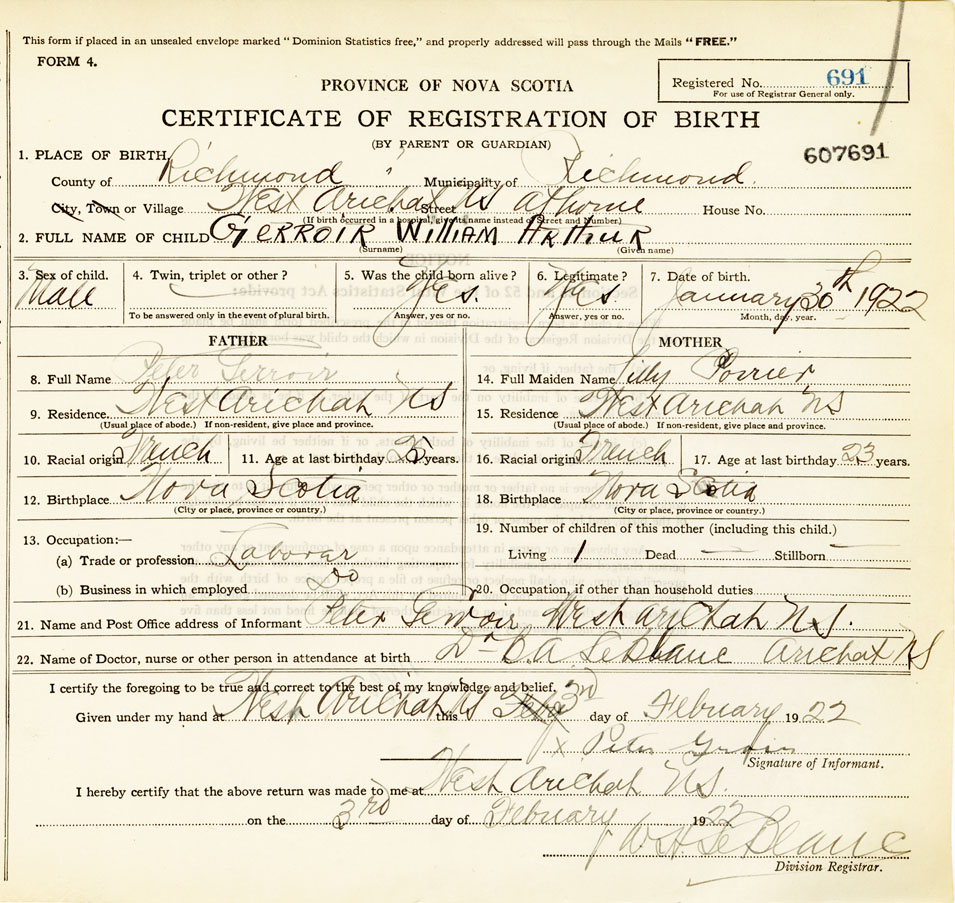 This form if placed in an unsealed envelope marked "Dominion Statistics free," and properly addressed will pass through the Mails "FREE."
FORM 4.
Registered No. 691
For use of Registrar General only.
PROVINCE OF NOVA SCOTIA
CERTIFICATE OF REGISTRATION OF BIRTH
(BY PARENT OR GUARDIAN)
607691
1. PLACE OF BIRTH
County of Richmond Municipality of Richmond.
City, Town or Village West Arichat NS Street at home House No.
(If birth occurred in a hospital, give its name instead of Street and Number)
2. FULL NAME OF CHILD GERROIR WILLIAM ARTHUR
(Surname) (Given name)
3. Sex of child. 4. Twin, triplet or other? 5. Was the child born alive? 6. Legitimate? 7. Date of birth.
Male Yes. Yes January 30th 1922
To be answered only in the event of plural birth. Answer, yes or no. Answer, yes or no. Month, day, year.
FATHER MOTHER
8. Full Name Peter Gerroir 14. Full Maiden Name Lilly Poirrier
9. Residence West Arichat NS 15. Residence West Arichat NS
(Usual place of abode.) If non-resident, give place and province. (Usual place of abode.) If non-resident, give place and province.
10. Racial origin French 11. Age at last birthday 25 years. 16. Racial origin French 17. Age at last birthday 23 years.
12. Birthplace Nova Scotia 18. Birthplace Nova Scotia
(City or place, province or country.) (City or place, province or country.)
13. Occupation:— 19. Number of children of this mother (including this child.)
(a) Trade or profession Labour Living 1 Dead — Stillborn —
(b) Business in which employed Do 20. Occupation, if other than household duties
21. Name and Post Office address of Informant Peter Gerroir West Arichat N.S.
22. Name of Doctor, nurse or other person in attendance at birth Dr B. A. LeBlanc Arichat NS
I certify the foregoing to be true and correct to the best of my knowledge and belief.
Given under my hand at West Arichat NS this 3rd day of February 1922
X Peter
Signature of Informant.
I hereby certify that the above return was made to me at West Arichat N.S.
on the 3rd day of February 1922
LeBlanc
Division Registrar.